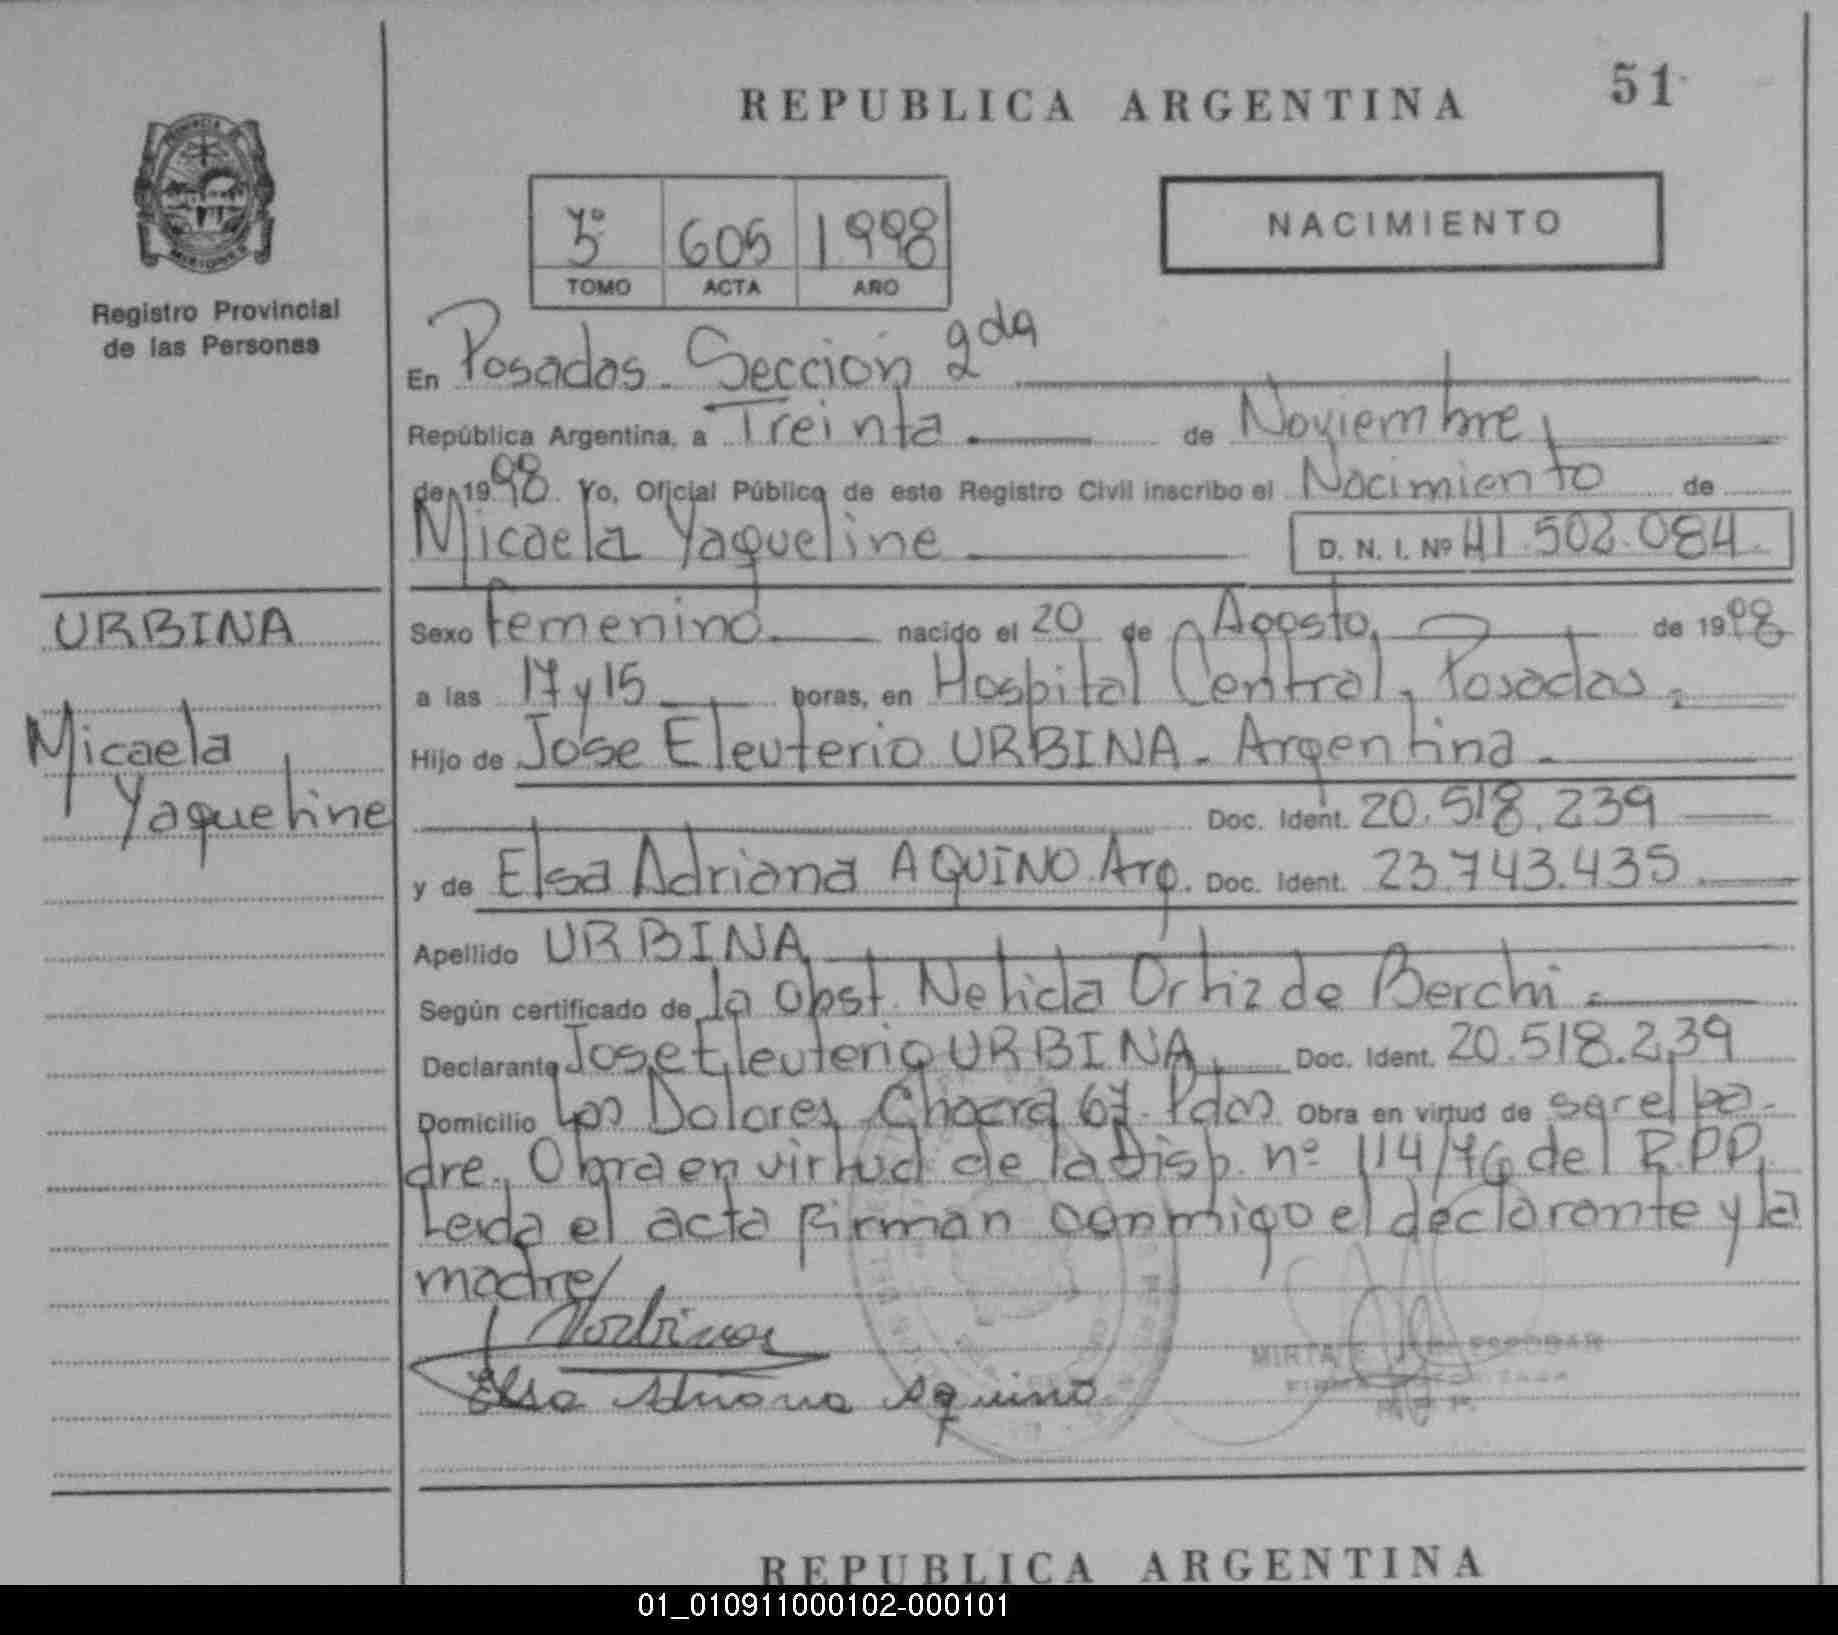 REPUBLICA ARGENTINA
51
Registro Provincial
de las Personas
5º 605 1.998
TOMO ACTA AÑO
NACIMIENTO
En Posadas. Sección 2da
República Argentina, a Treinta de Noviembre,
de 1998. Yo, Oficial Público de este Registro Civil inscribo el Nacimiento de
Micaela Yaqueline D. N. I. Nº 41.502.084.
URBINA
Micaela
Yaqueline
Sexo femenino nacido el 20 de Agosto, de 1998
a las 17 y 15 horas, en Hospital Central, Posadas,
Hijo de Jose Eleuterio URBINA. Argentina.
Doc. Ident. 20.518.239
y de Elsa Adriana AQUINO Arg. Doc. Ident. 23.743.435
Apellido URBINA
Según certificado de la Obst. Nelida Ortiz de Berchi.
Declarante Jose Eleuterio URBINA, Doc. Ident. 20.518.239
Domicilio Los Dolores, Chacra 67. Pdas Obra en virtud de ser el pa-
dre. Obra en virtud de la Disp. nº 114/76 del R.P.P.
Leida el acta firman conmigo el declarante y la
madre/
Elsa Adriana Aquino
MIRTA ESCOBAR
REPUBLICA ARGENTINA
01_010911000102-000101